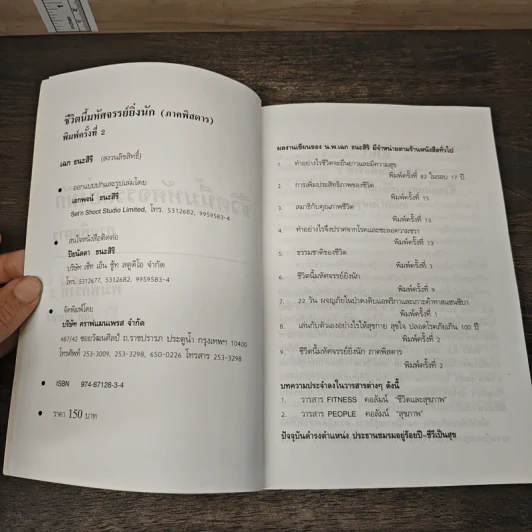 ชีวิตนี้มหัศจรรย์ยิ่งนัก (ภาคพิสดาร)
พิมพ์ครั้งที่ 2
เฉก ธนะสิริ (สงวนลิขสิทธิ์)
ออกแบบปกและรูปเล่มโดย
เอกพจน์ ธนะสิริ
Set'n Shoot Studio Limited, โทร. 5312682, 9959583-4
สนใจหนังสือติดต่อ
ปิยนัดดา ธนะสิริ
บริษัท เซ็ท เอ็น ชู้ท สตูดิโอ จำกัด
โทร. 5312677, 5312682, 9959583-4
จัดพิมพ์โดย
บริษัท คราฟแมนเพรส จำกัด
467/42 ซอยวัฒนศิลป์ ถ.ราชปรารภ ประตูน้ำ กรุงเทพฯ 10400
โทรศัพท์ 253-3009, 253-3298, 650-0226 โทรสาร 253-3298
ISBN 974-87128-3-4
ราคา 150 บาท
ผลงานเขียนของ น.พ.เฉก ธนะสิริ มีจำหน่ายตามร้านหนังสือทั่วไป
1. ทำอย่างไรชีวิตจะยืนยาวและมีความสุข
พิมพ์ครั้งที่ 82 ในรอบ 17 ปี
2. การเพิ่มประสิทธิภาพของชีวิต
พิมพ์ครั้งที่ 15
3. สมาธิกับคุณภาพชีวิต
พิมพ์ครั้งที่ 13
4. ทำอย่างไรจึงปราศจากโรคและชะลอความชรา
พิมพ์ครั้งที่ 13
5. ธรรมชาติของชีวิต
พิมพ์ครั้งที่ 3
6. ชีวิตนี้มหัศจรรย์ยิ่งนัก
พิมพ์ครั้งที่ 9
7. 22 วัน ผจญภัยในป่าดงดิบแอฟริกาและเกาะค้าทาสแซนซิบา
พิมพ์ครั้งที่ 1
8. เล่นกับตัวเองอย่างไรให้สุขกาย สุขใจ ปลอดโรคภัยเกิน 100 ปี
พิมพ์ครั้งที่ 2
9. ชีวิตนี้มหัศจรรย์ยิ่งนัก ภาคพิสดาร
พิมพ์ครั้งที่ 2
บทความประจำลงในวารสารต่างๆ ดังนี้
1. วารสาร FITNESS คอลัมน์ "ชีวิตและสุขภาพ"
2. วารสาร PEOPLE คอลัมน์ "สุขภาพ"
ปัจจุบันดำรงตำแหน่ง ประธานชมรมอยู่ร้อยปี-ชีวีเป็นสุข